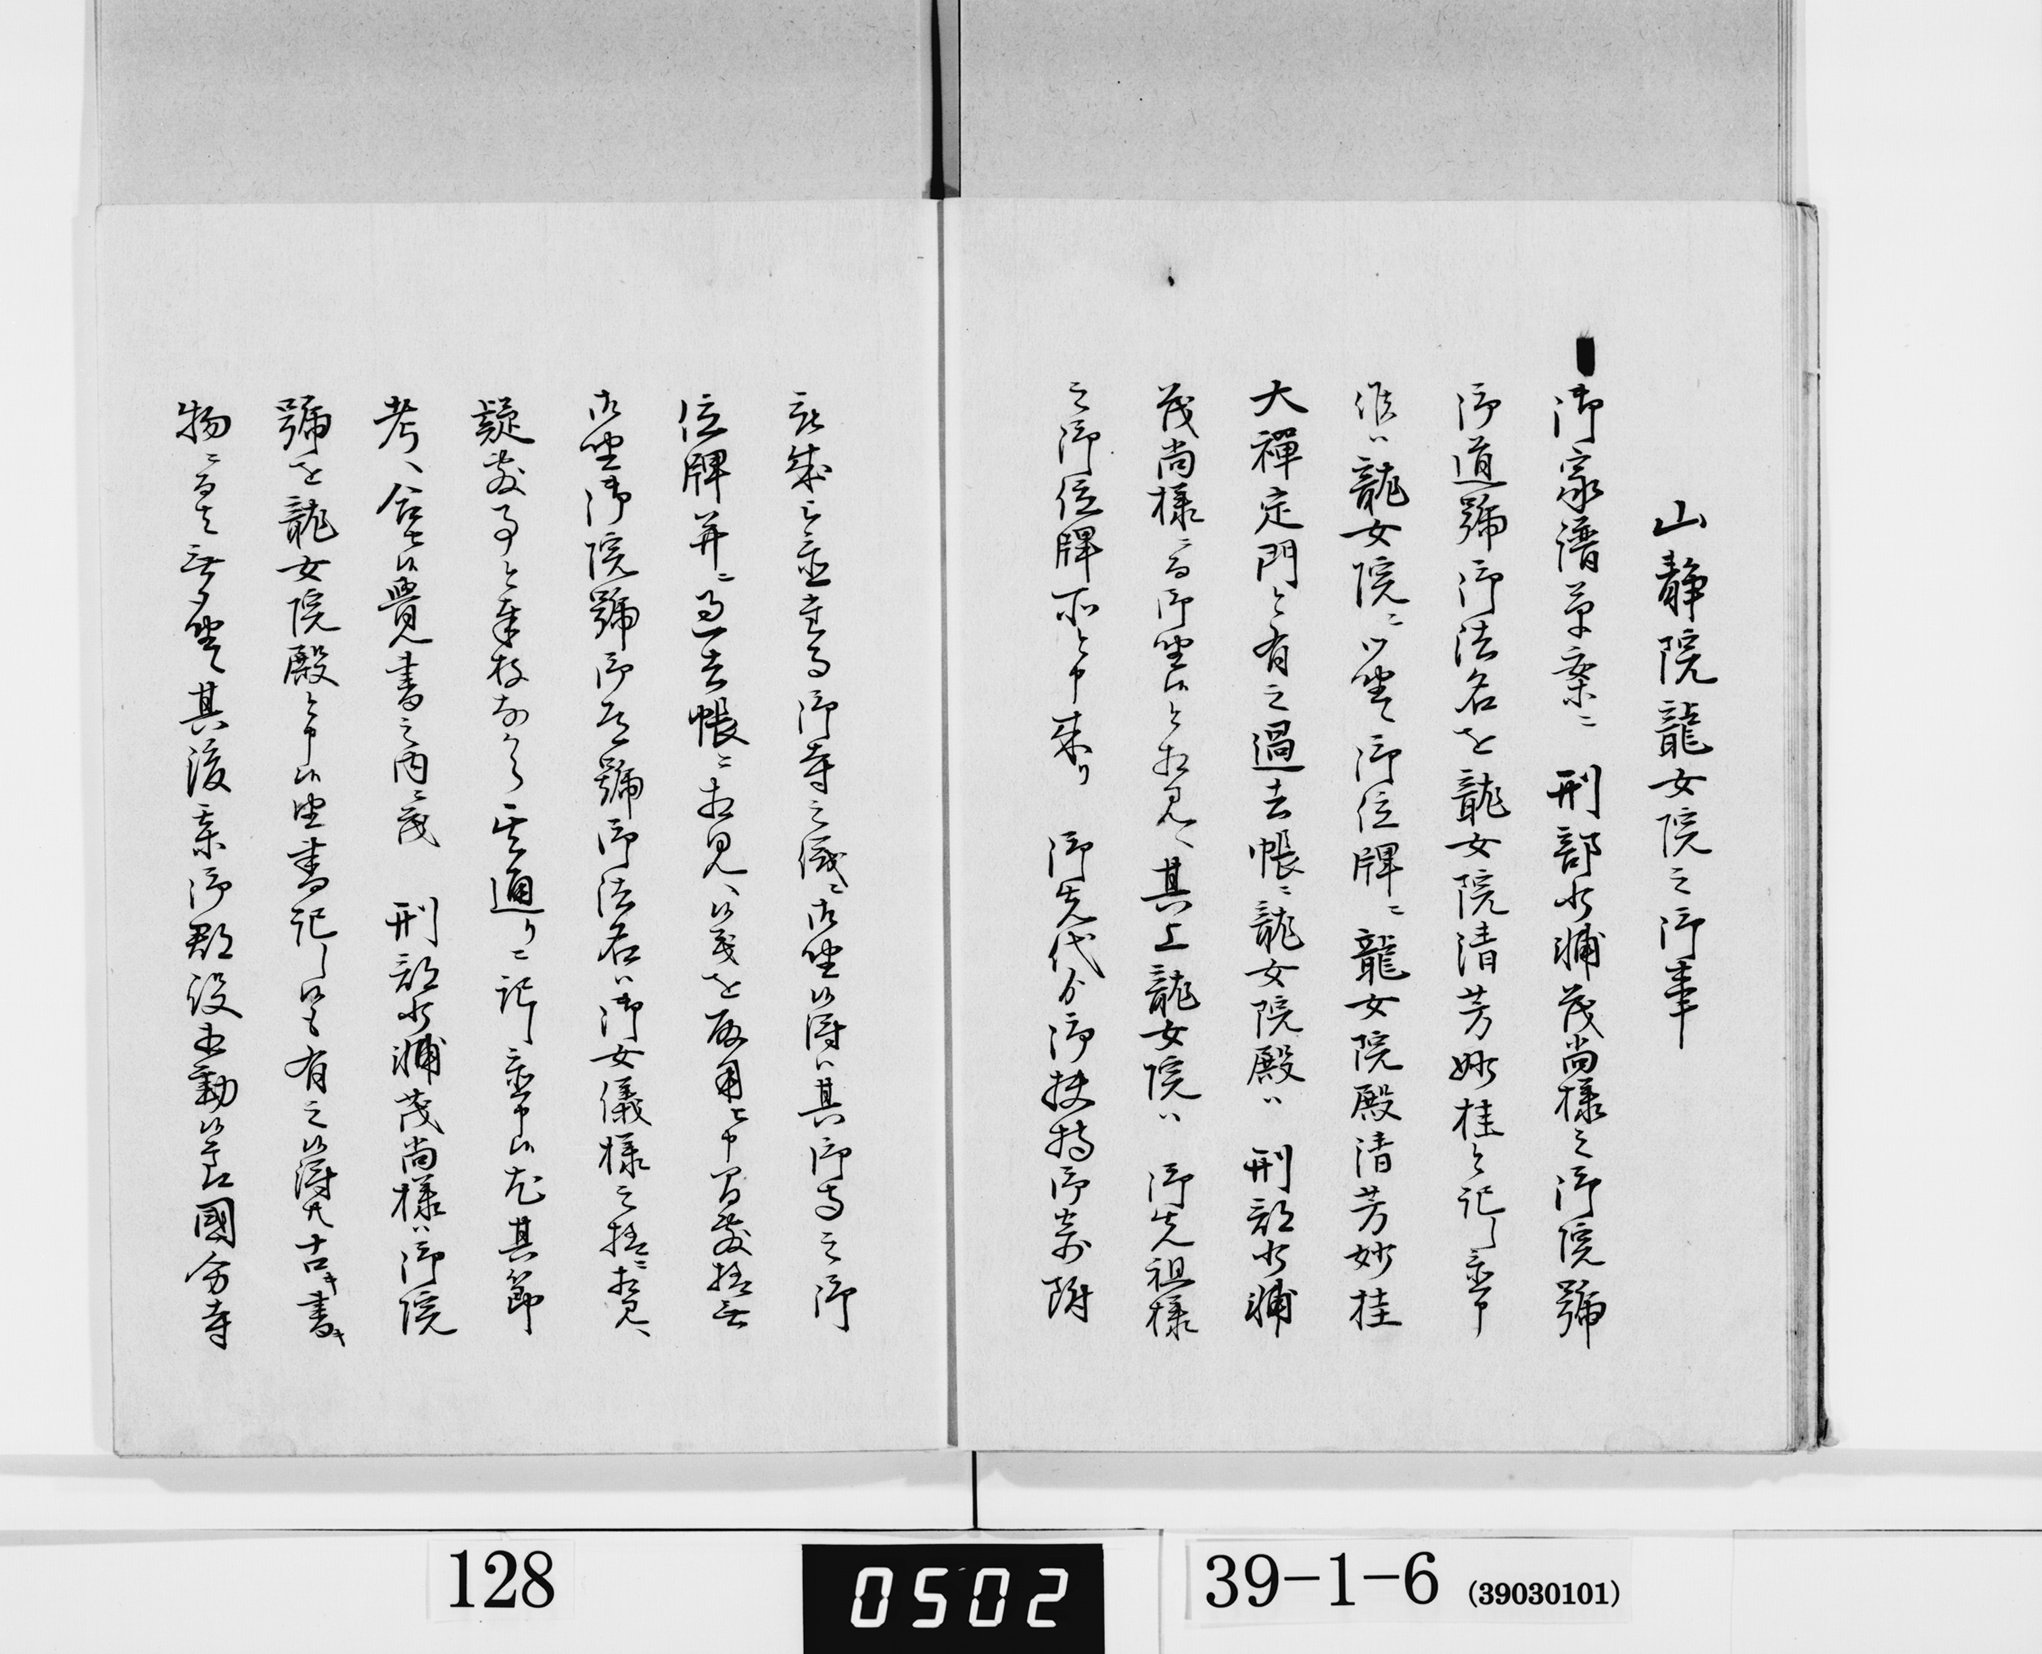 山静院龍女院之御事
御家譜草案ニ 刑部少輔茂尚様之御院號
御道號御法名を龍女院清芳妙桂と記し置申
候ハ龍女院ニ御位牌ニ龍女院殿清芳妙桂
大禪定門と有之過去帳ニ龍女院殿ハ 刑部少輔
茂尚様ニ而御坐候と相見へ其上龍女院ハ 御先祖様
之御位牌所と申来り 御先代分御扶持御寄附
被成置御寺之儀ニ御坐候得ハ其御寺之御
位牌并ニ過去帳ニ相見へ候義を取用ヒ申
御坐御院號御道號御法名ハ御女儀様之様ニ相見へ
疑敷事と奉存なから其通りニ記し置申候尤其節
考へ合せ候覺書之内ニ茂 刑部少輔茂尚様ハ御院
號を龍女院殿と申候由書記し有之候得共古キ書キ
物ニ而も無御坐其後某御郡役出勤候節國分寺
128
0502
39-1-6 (39030101)